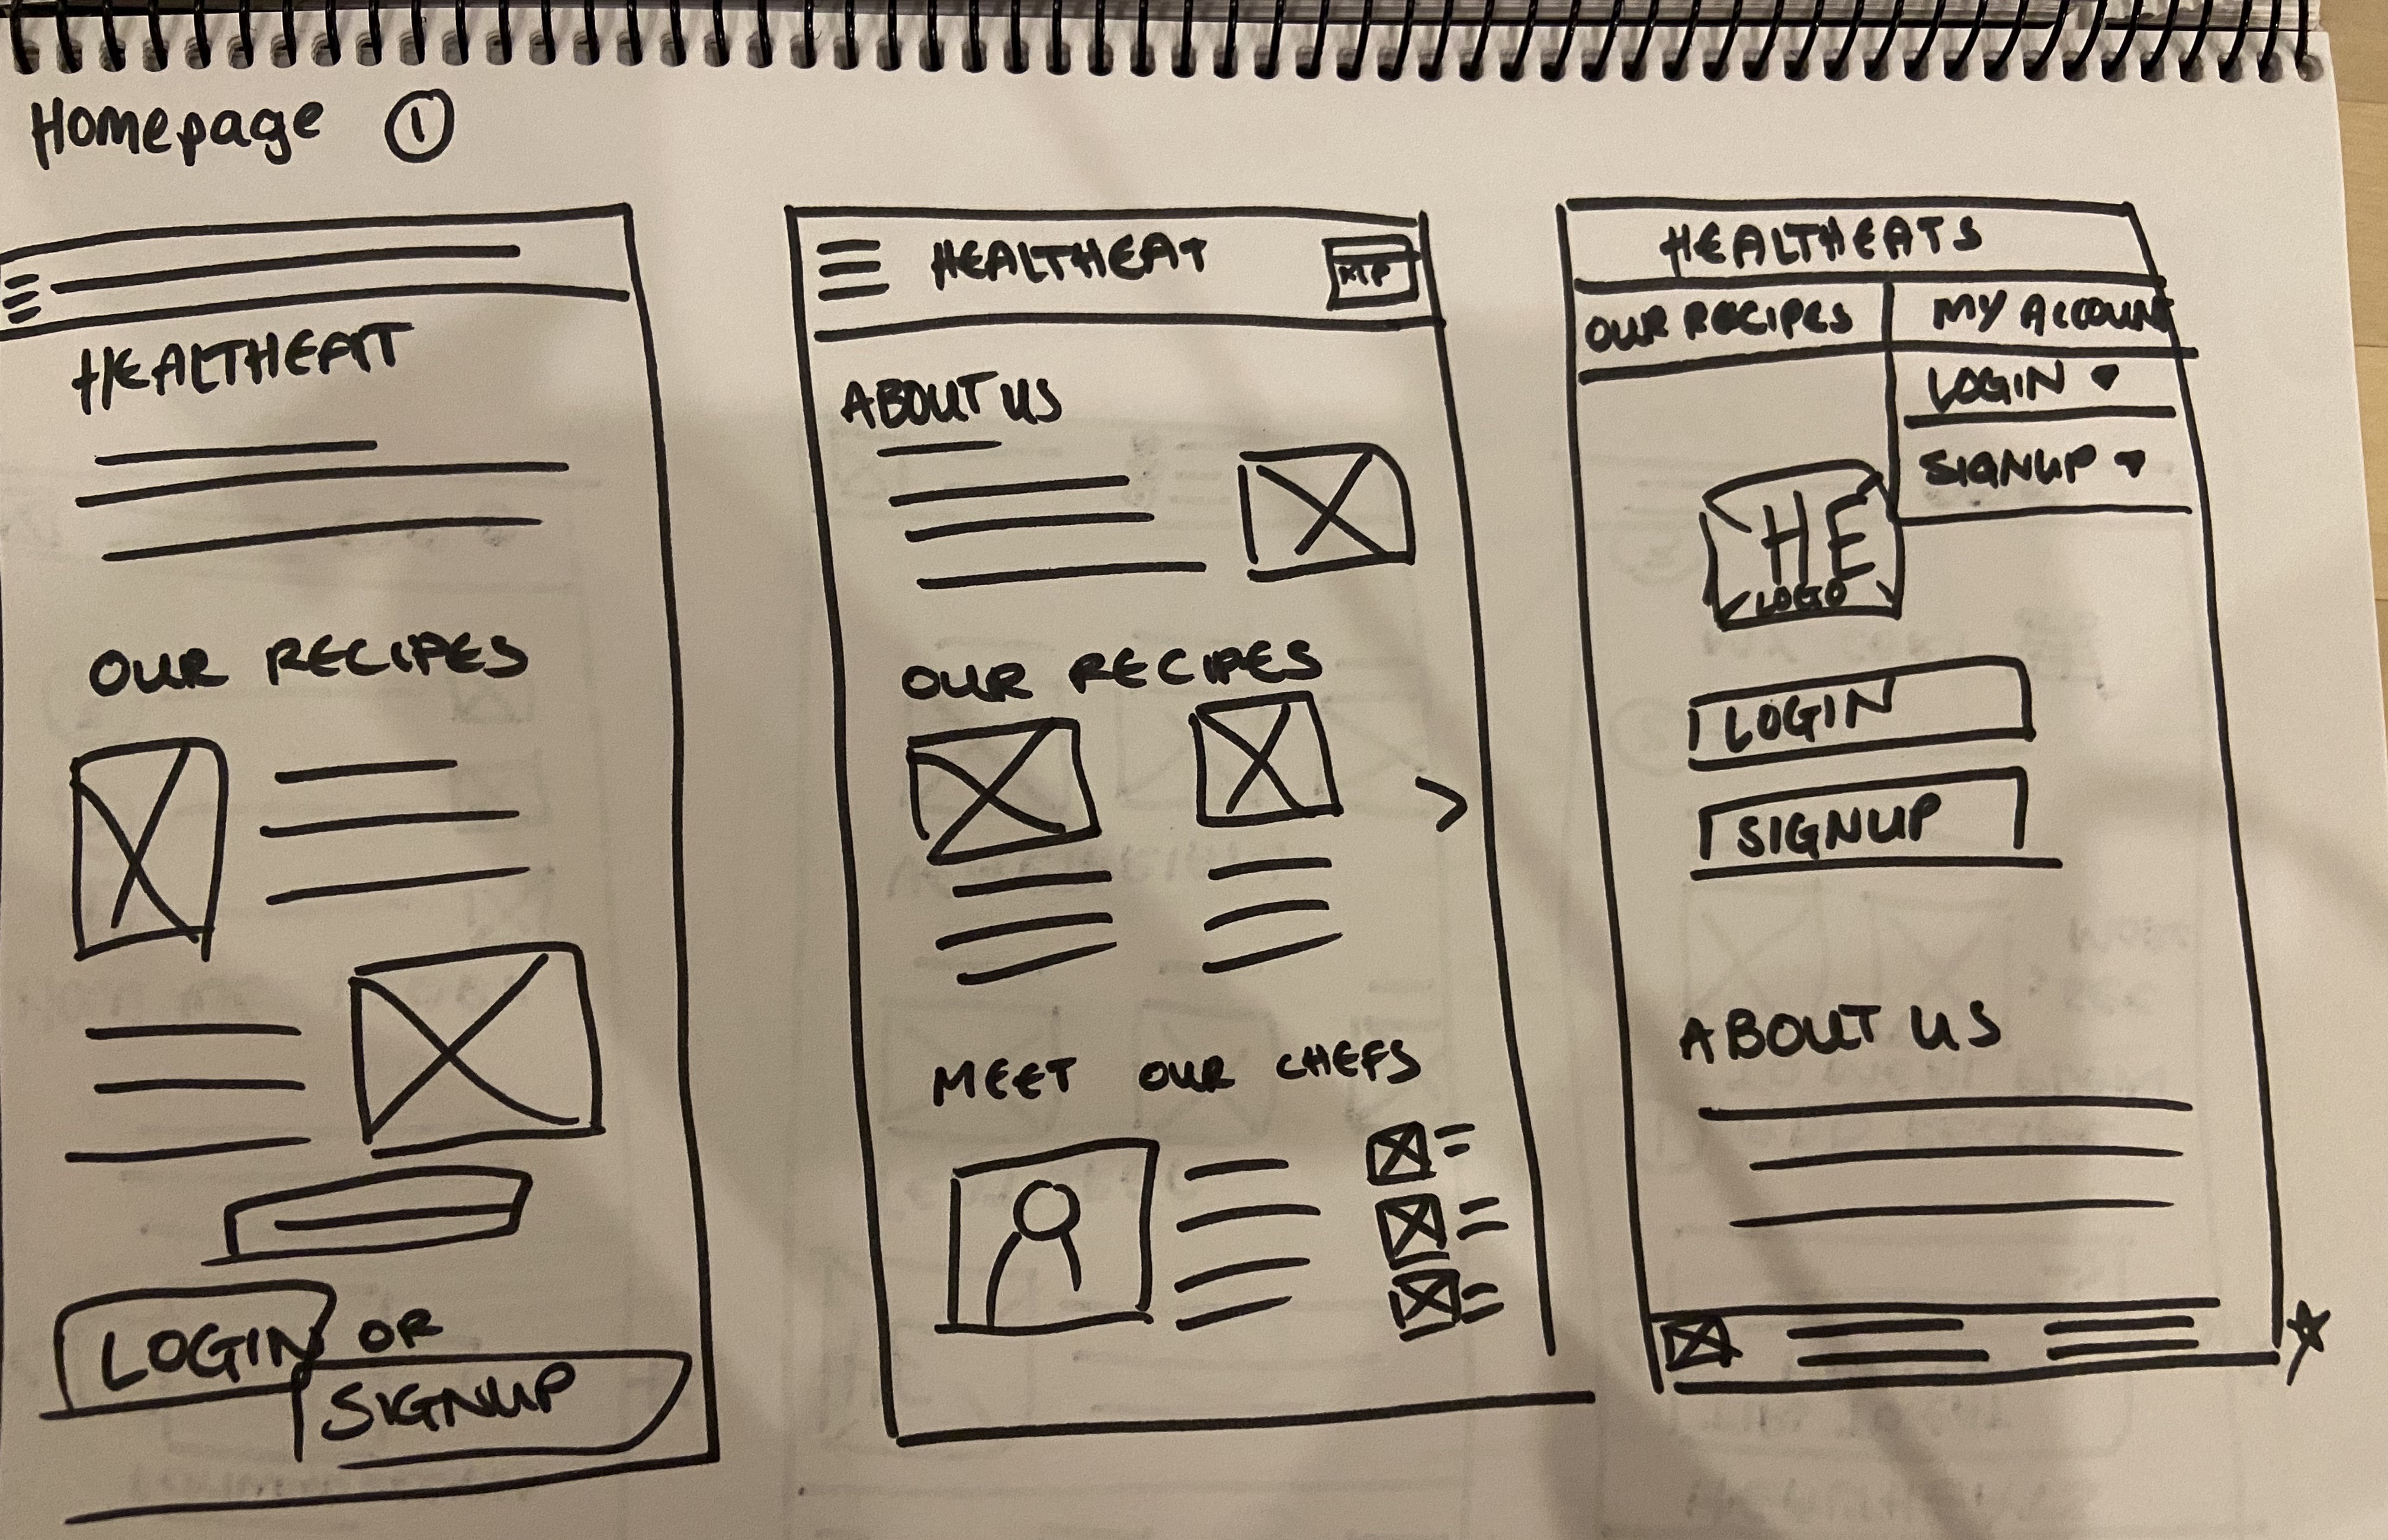 Homepage 1
HEALTHEAT
OUR RECIPES
LOGIN OR
SIGNUP
HEALTHEAT
ABOUT US
OUR RECIPES
MEET OUR CHEFS
HEALTHEATS
OUR RECIPES
MY ACCOUNT
LOGIN
SIGNUP
HE
LOGO
LOGIN
SIGNUP
ABOUT US